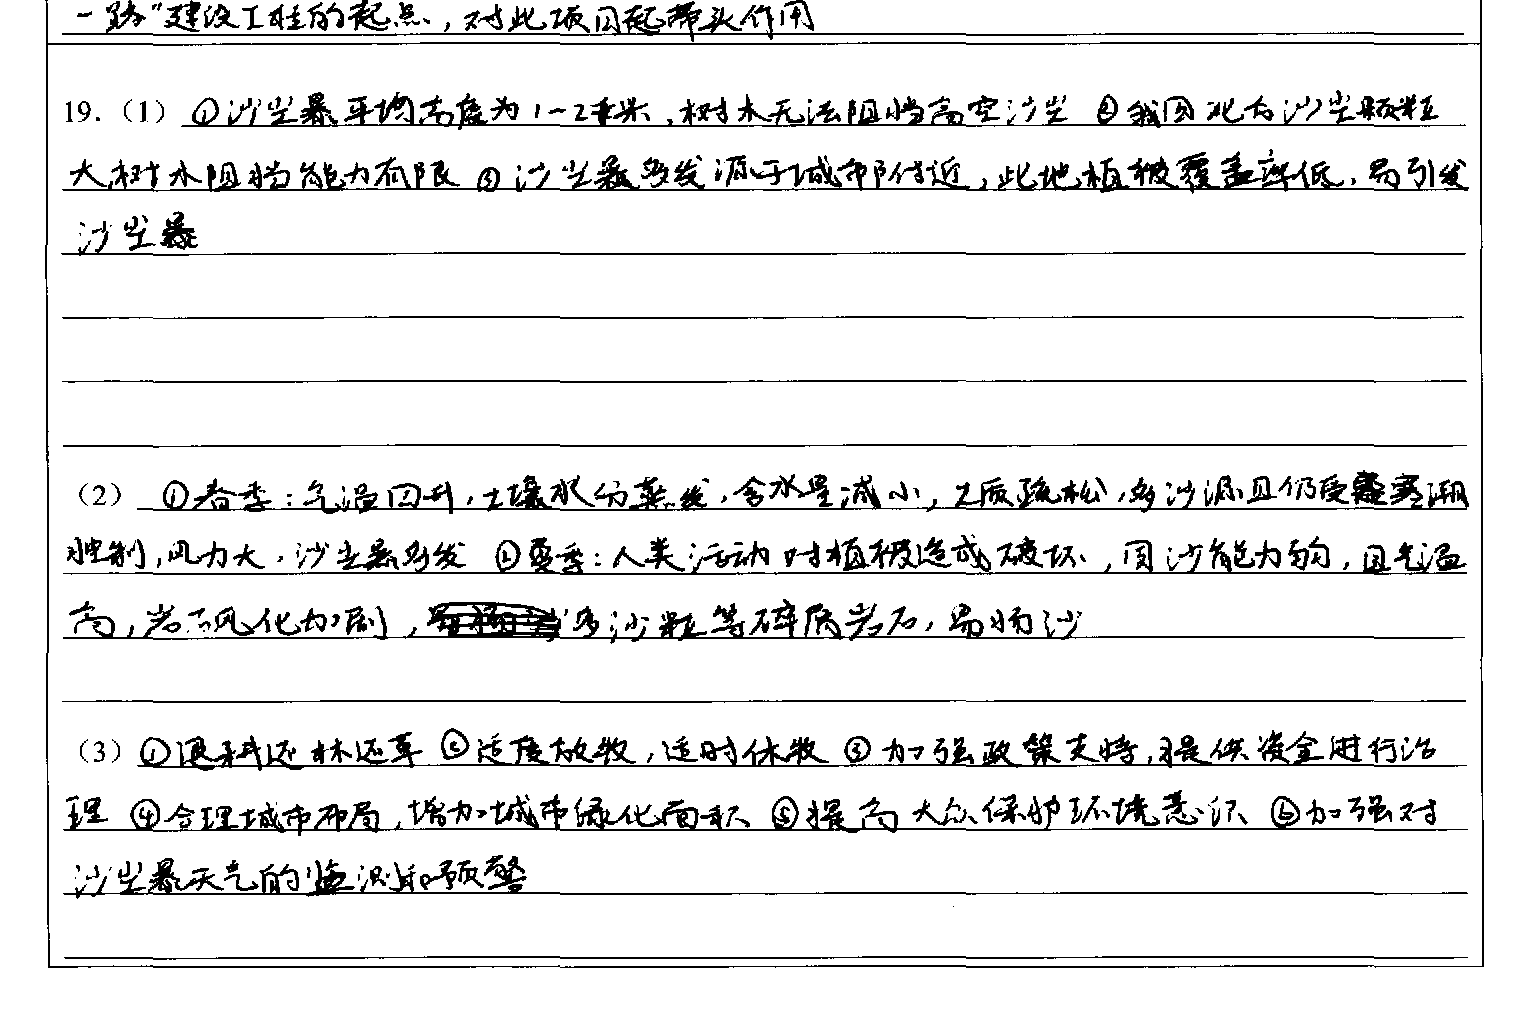 一路"建设工程的起点，对此项目起带头作用
19.（1）①沙尘暴平均高度为1-2千米，树木无法阻挡高空沙尘 ②我国北方沙尘颗粒
大，树木阻挡能力有限 ③沙尘暴多发源于城市附近，此地植被覆盖率低，易引发
沙尘暴
（2）①春季：气温回升，土壤水分蒸发，含水量减小，土质疏松，多沙源且仍受寒潮
控制，风力大，沙尘暴多发 ②夏季：人类活动对植被造成破坏，固沙能力弱，且气温
高，岩石风化加剧，多沙粒等碎屑岩石，易扬沙
（3）①退耕还林还草 ②适度放牧，适时休牧 ③加强政策支持，提供资金进行治
理 ④合理城市布局，增加城市绿化面积 ⑤提高大众保护环境意识 ⑥加强对
沙尘暴天气的监测和预警